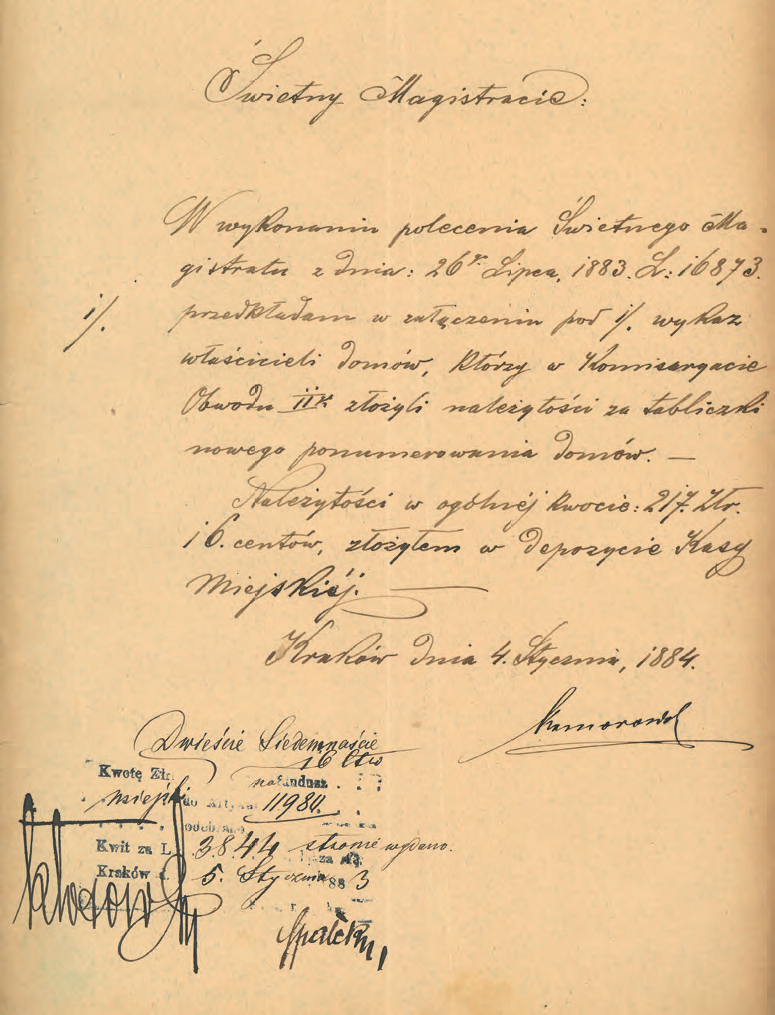 Świetny Magistracie:
W wykonaniu polecenia Świetnego Ma-
gistratu z dnia: 26go Lipca, 1883. L: 16873.
1/.
przedkładam w załączeniu pod 1/. wykaz
właścicieli domów, którzy w Komisaryacie
Obwodu II. złożyli należytości za tabliczki
nowego ponumerowania domów. —
Należytości w ogólnéj kwocie: 217. Złr.
16. centów, złożyłem w depozycie Kasy
Miejskiéj.
Kraków dnia 4. Stycznia, 1884.
Dwieście Siedemnaście
16 Ctw
Kwotę Złr. na fundusz
miejski do Artyku 11980.
odebrano
Kwit za L. 3844 stronie wydano.
Kraków d. 5. Stycznia 1883